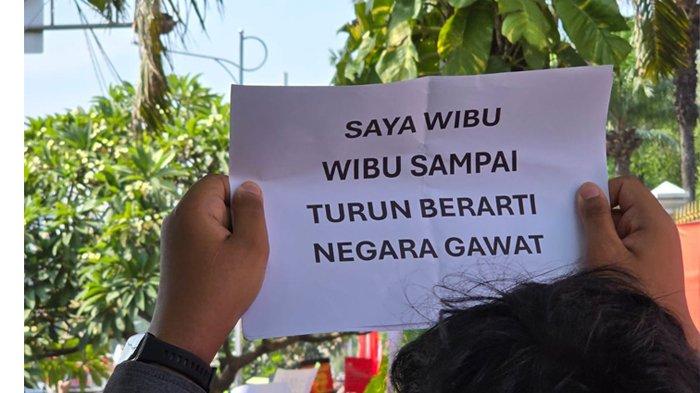 SAYA WIBU
WIBU SAMPAI
TURUN BERARTI
NEGARA GAWAT